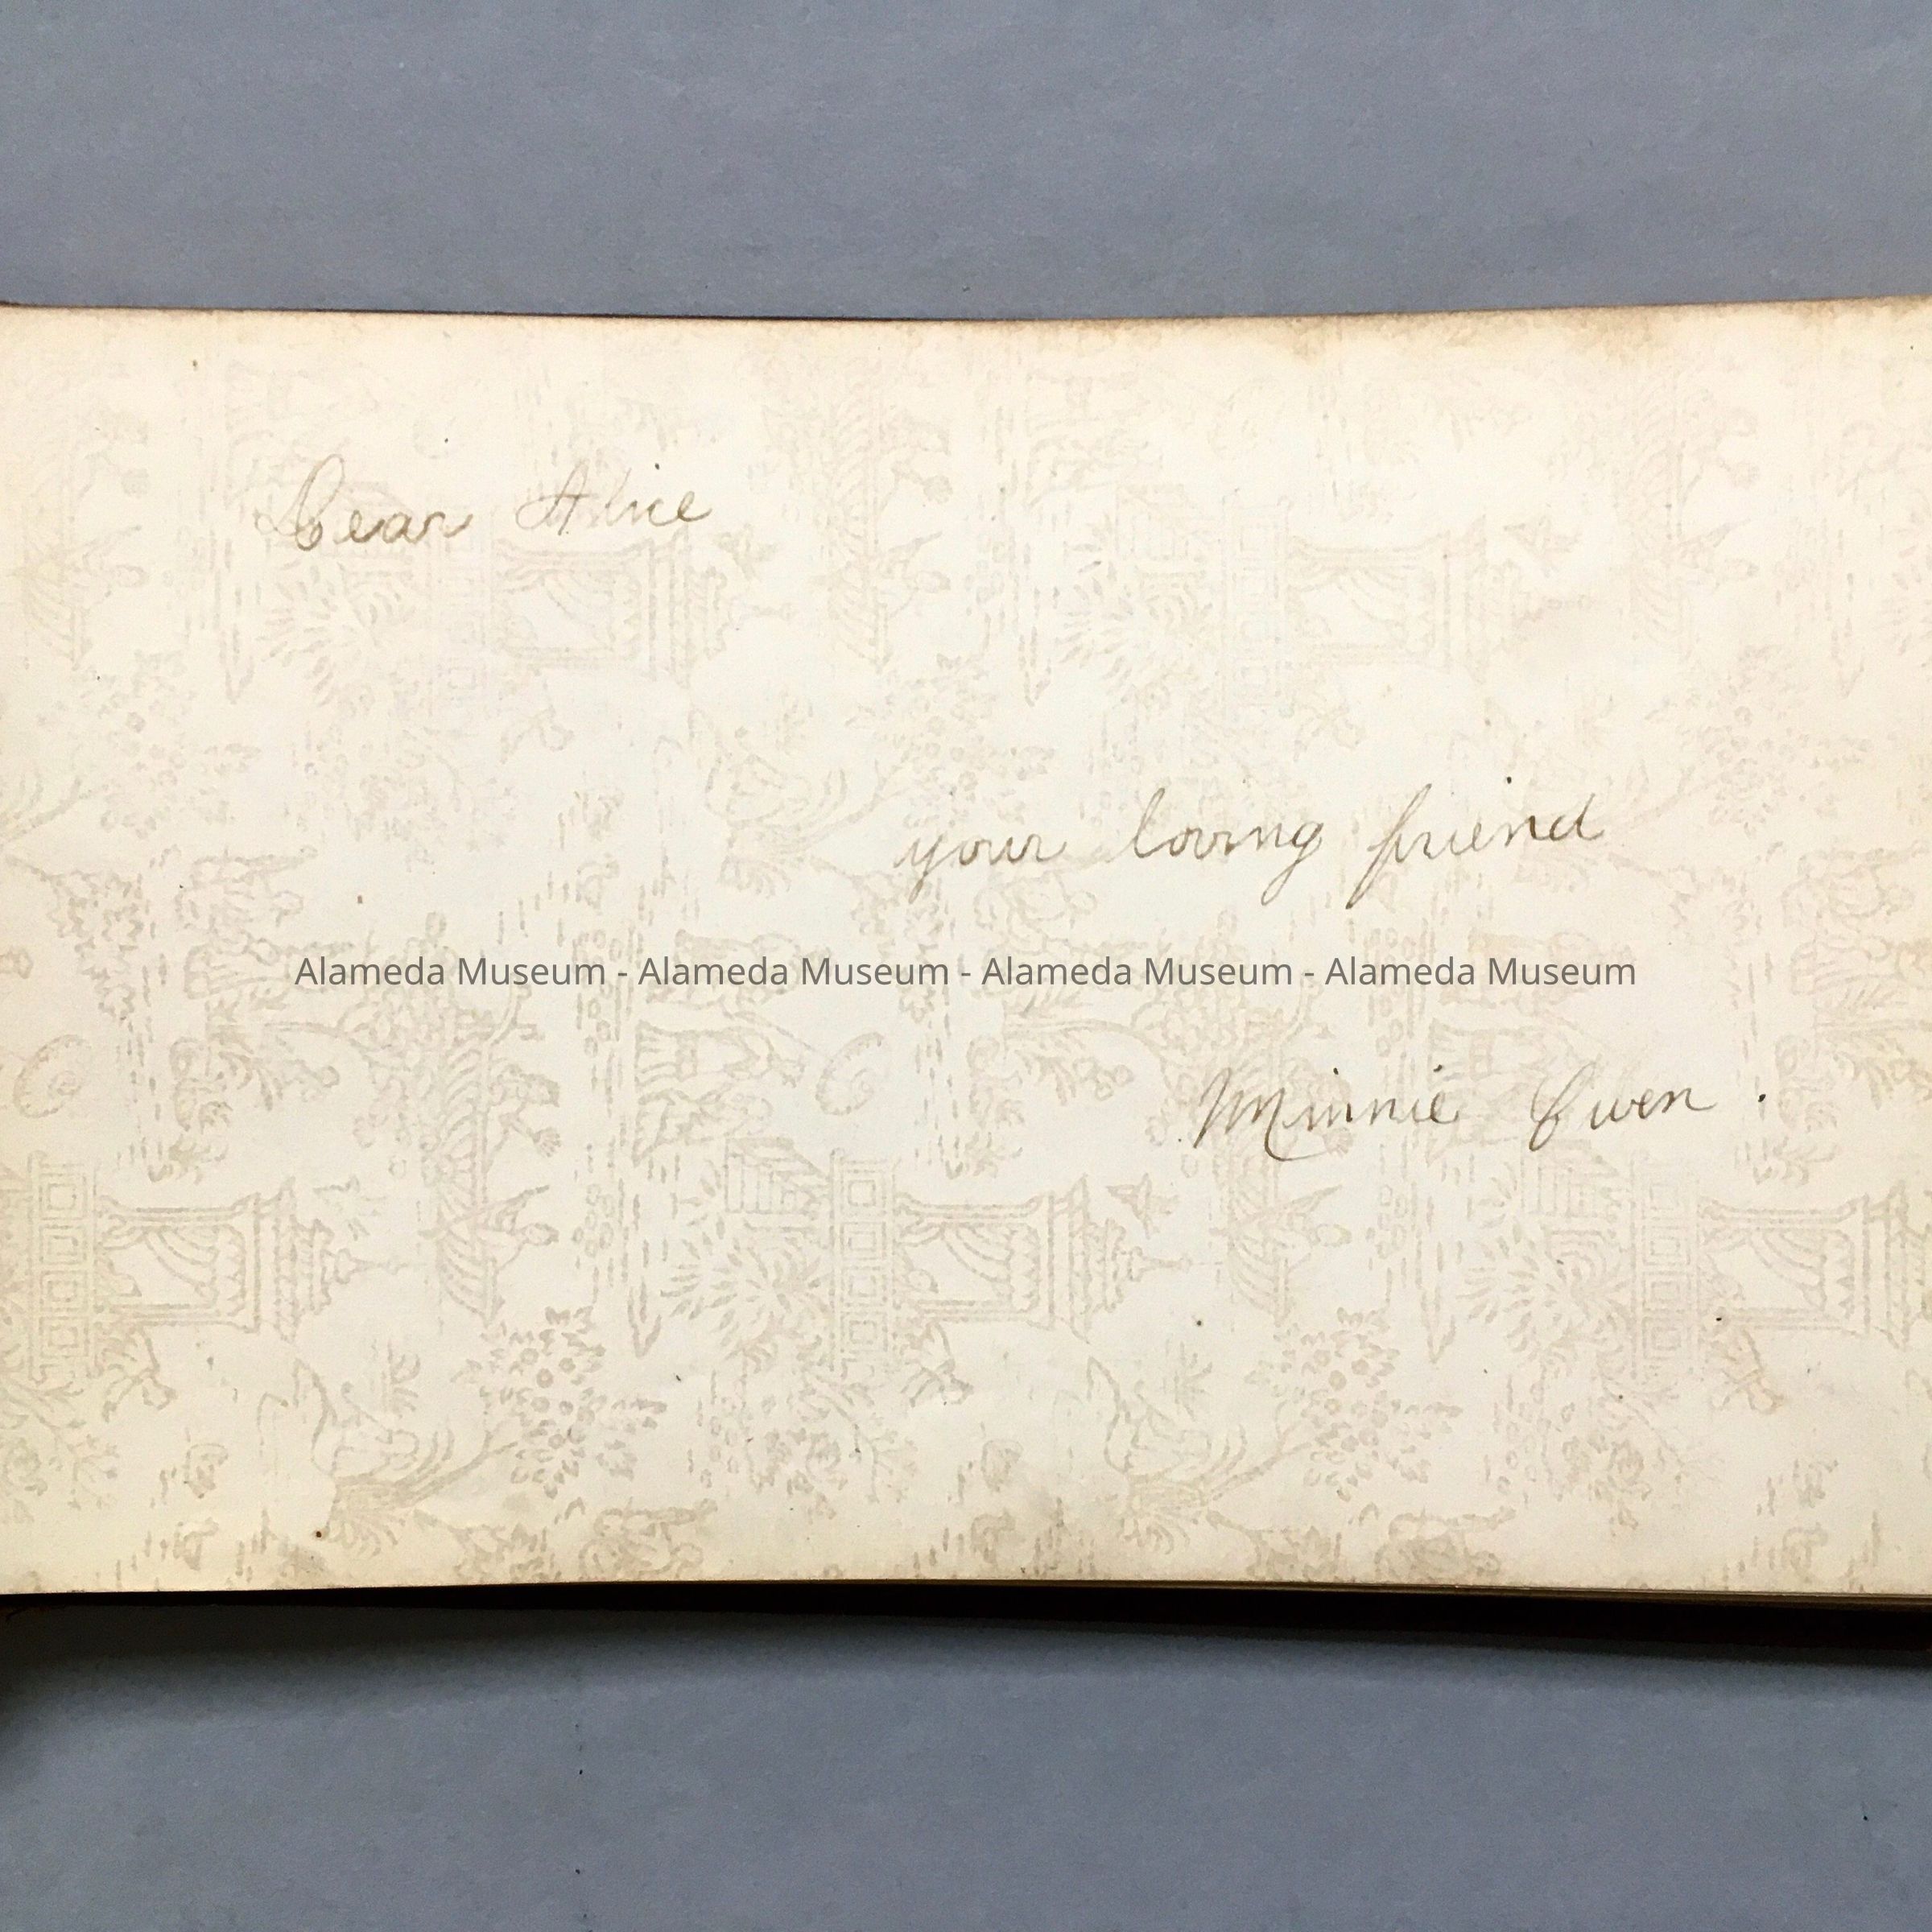 Dear Alice
your loving friend
Alameda Museum - Alameda Museum - Alameda Museum - Alameda Museum
Minnie Owen.